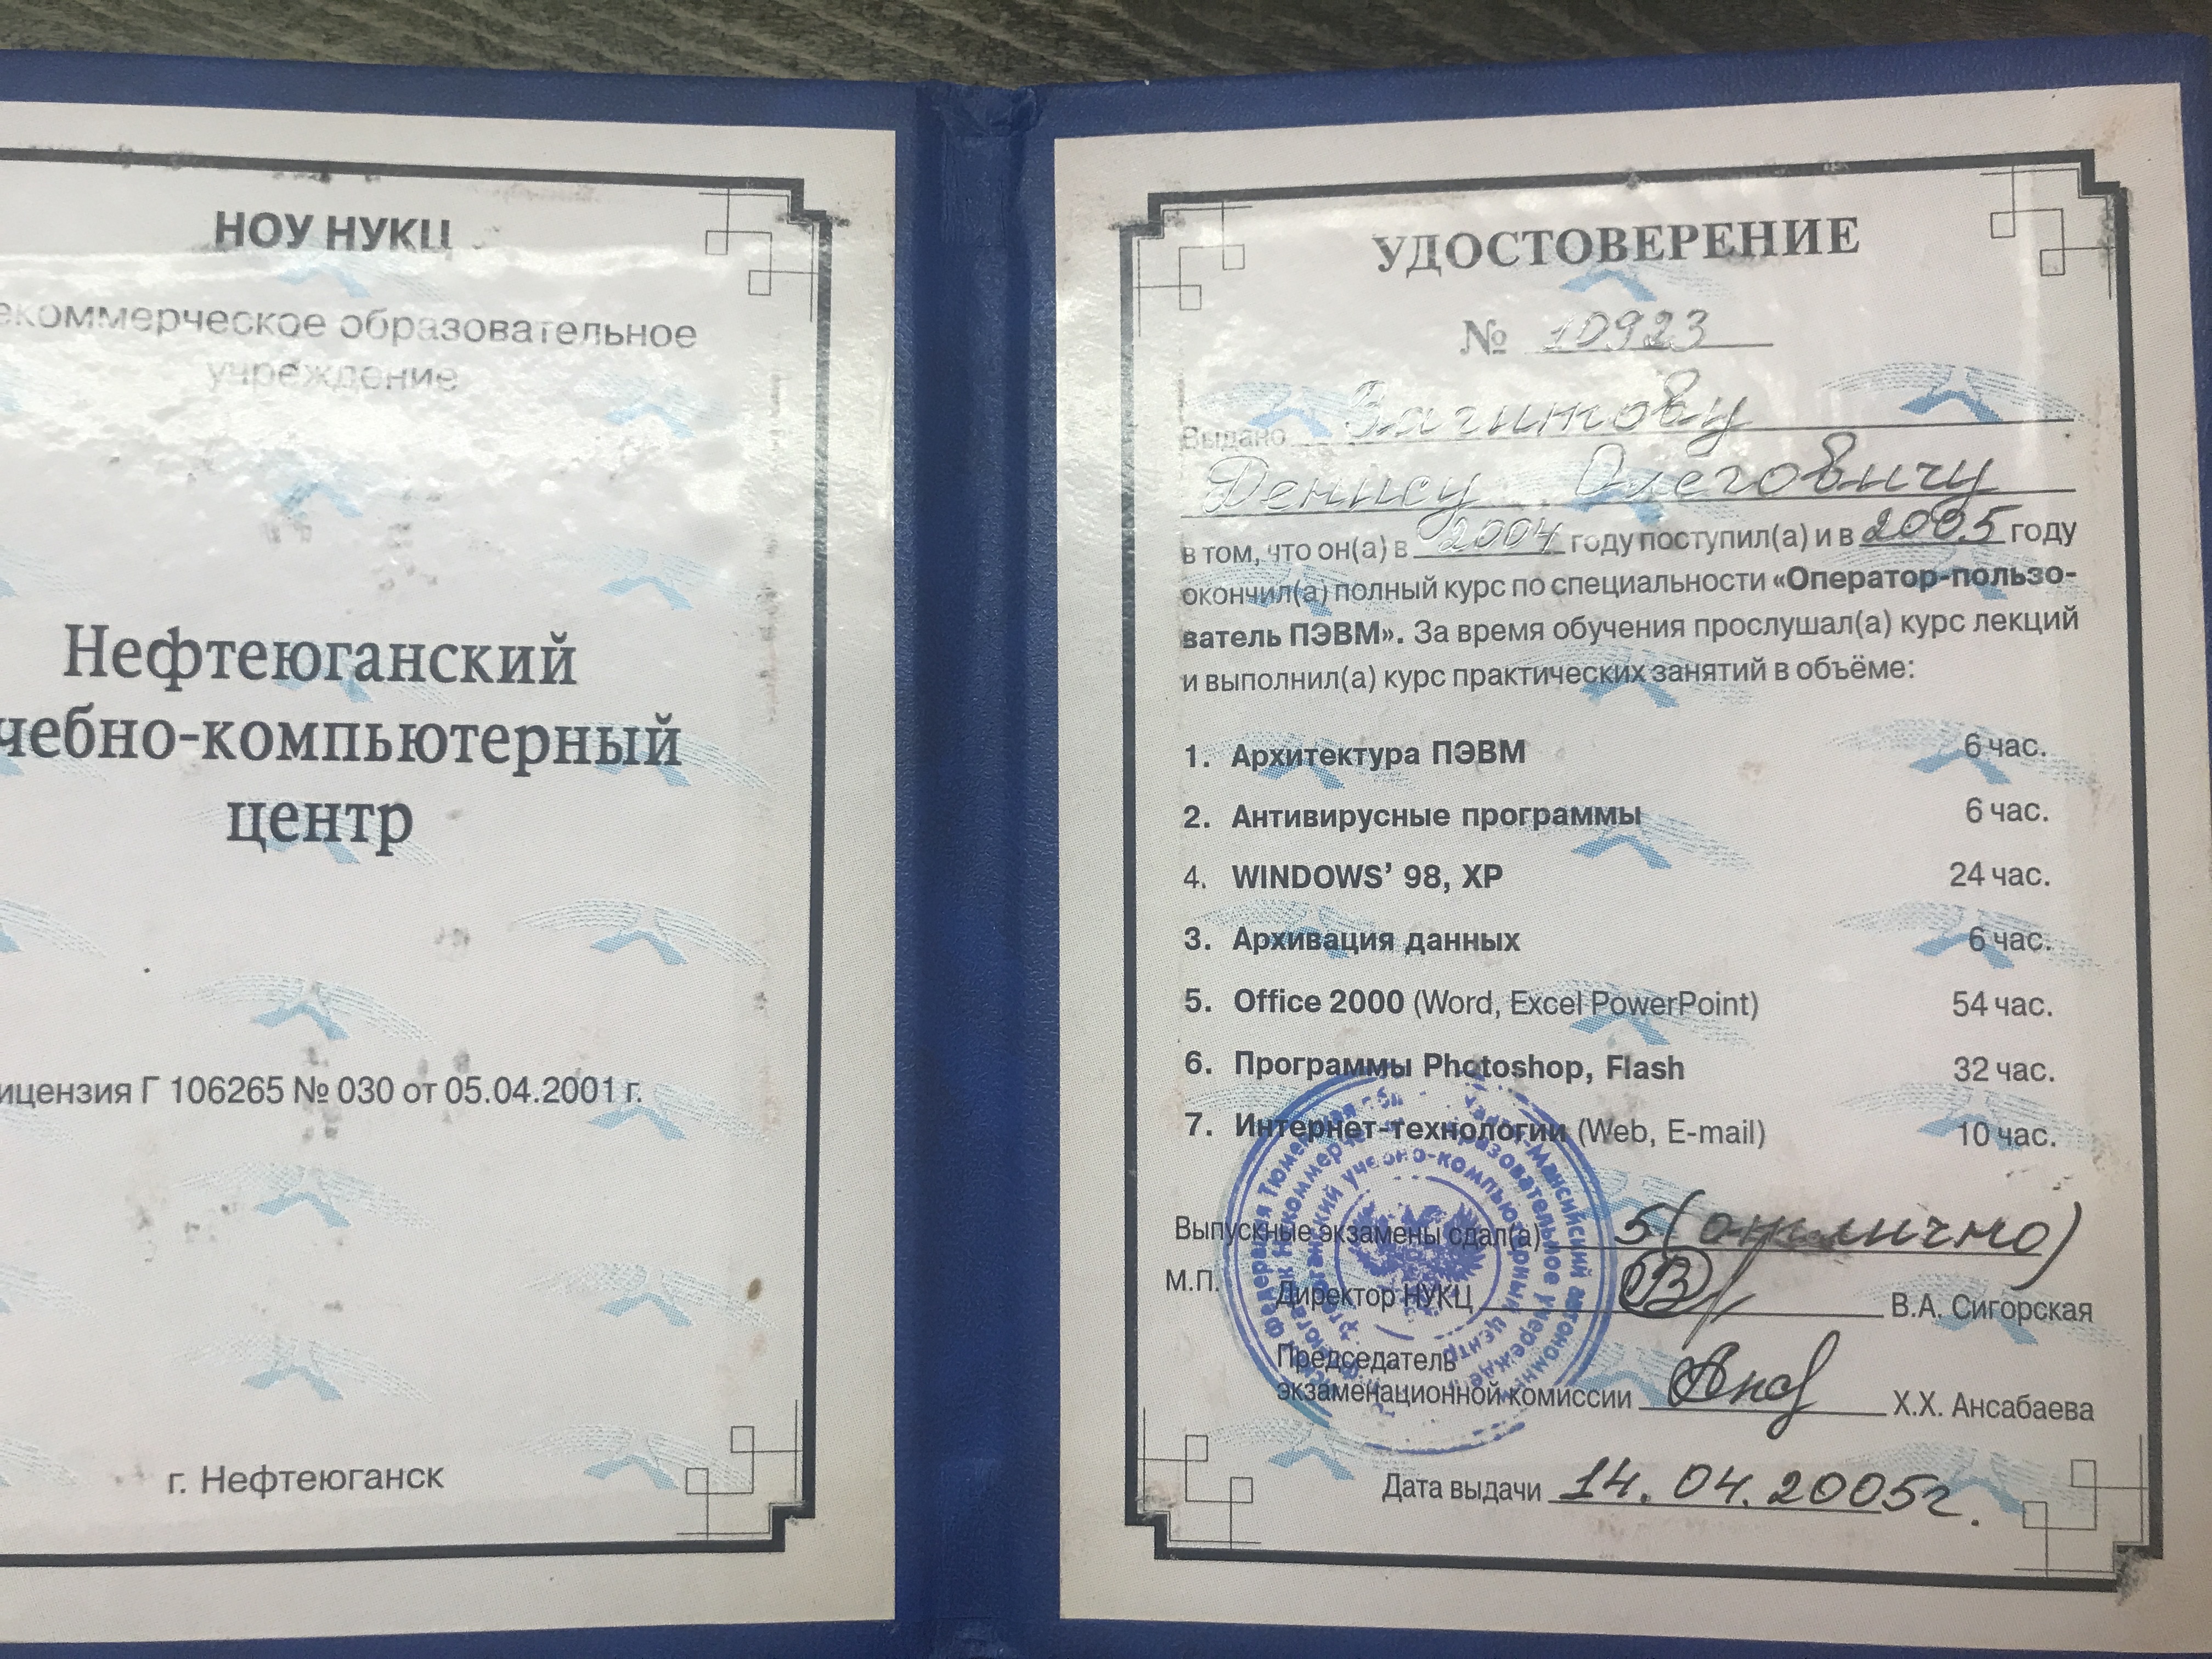 НОУ НУКЦ
екоммерческое образовательное
учреждение
Нефтеюганский
чебно-компьютерный
центр
ицензия Г 106265 № 030 от 05.04.2001 г.
г. Нефтеюганск
УДОСТОВЕРЕНИЕ
№ 10923
Выдано Загинову
Денису Олеговичу
в том, что он(а) в 2004 году поступил(а) и в 2005 году
окончил(а) полный курс по специальности «Оператор-пользо-
ватель ПЭВМ». За время обучения прослушал(а) курс лекций
и выполнил(а) курс практических занятий в объёме:
1. Архитектура ПЭВМ 6 час.
2. Антивирусные программы 6 час.
4. WINDOWS’ 98, XP 24 час.
3. Архивация данных 6 час.
5. Office 2000 (Word, Excel PowerPoint) 54 час.
6. Программы Photoshop, Flash 32 час.
7. Интернет-технологии (Web, E-mail) 10 час.
Выпускные экзамены сдал(а) 5 (отлично)
М.П.
Директор НУКЦ В.А. Сигорская
Председатель
экзаменационной комиссии Х.Х. Ансабаева
Дата выдачи 14.04.2005г.